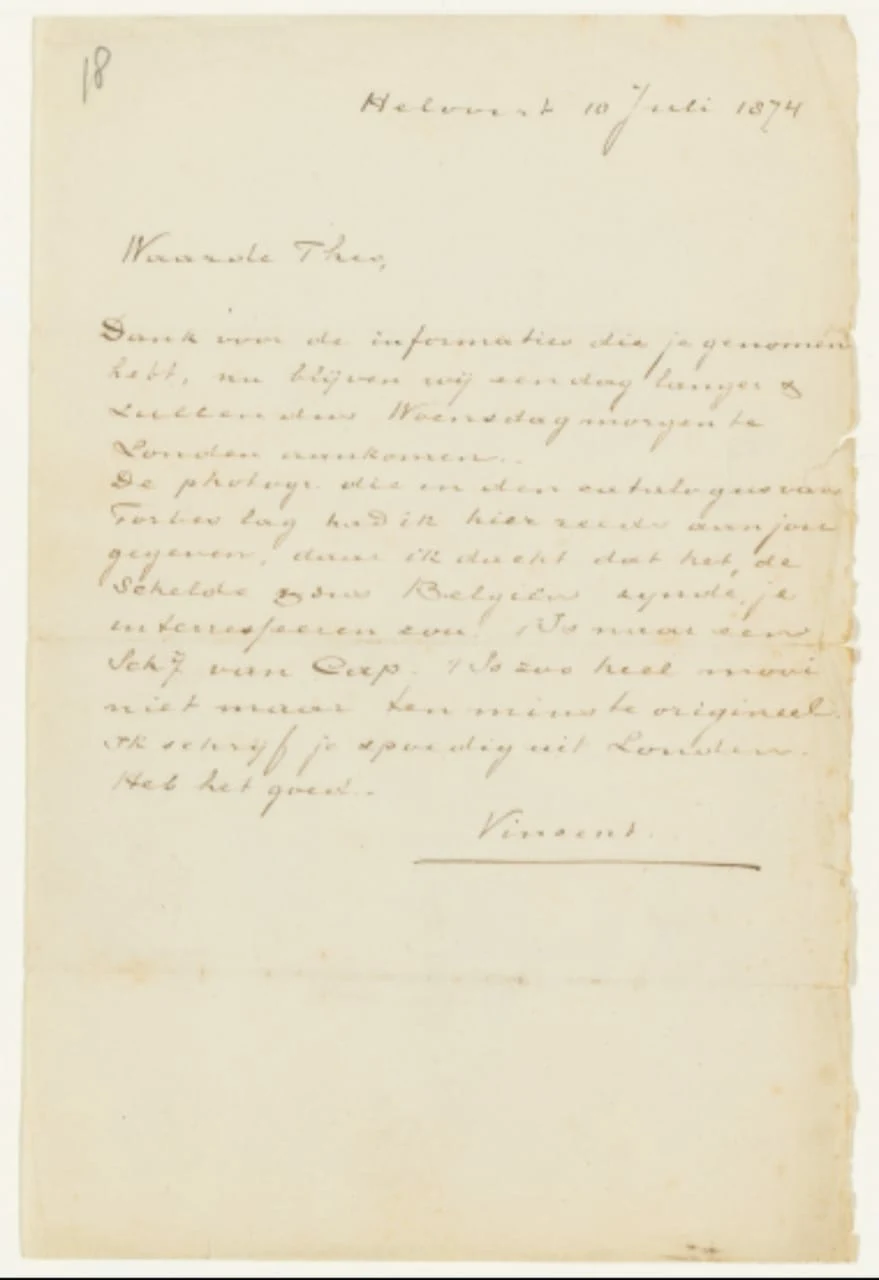 18
Helvoirt 10 Juli 1874
Waarde Theo,
Dank voor de informaties die je genomen
hebt, nu blijven wij een dag langer &
zullen dus Woensdag morgen te
Londen aankomen.
De photogr. die in den catalogus van
Forbes lag had ik hier reeds aan jou
gegeven, daar ik dacht dat het, de
Schelde & dus Belgien zynde, je
interresseeren zou. Is naar een
Sch7 van Cap. Is zoo heel mooi
niet maar ten minste origineel.
Ik schryf je spoedig uit Londen.
Heb het goed.
Vincent.